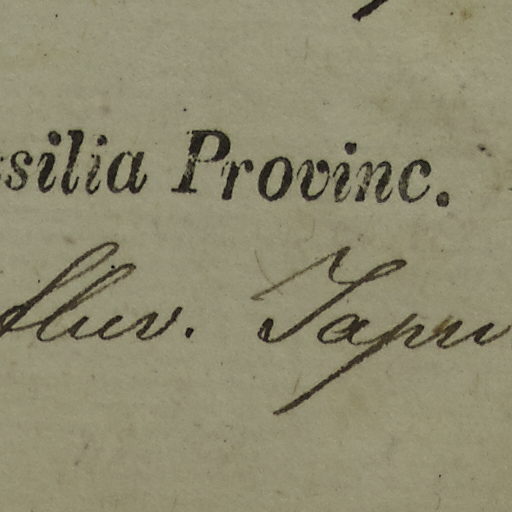 silia Provinc.
fluv. Japu